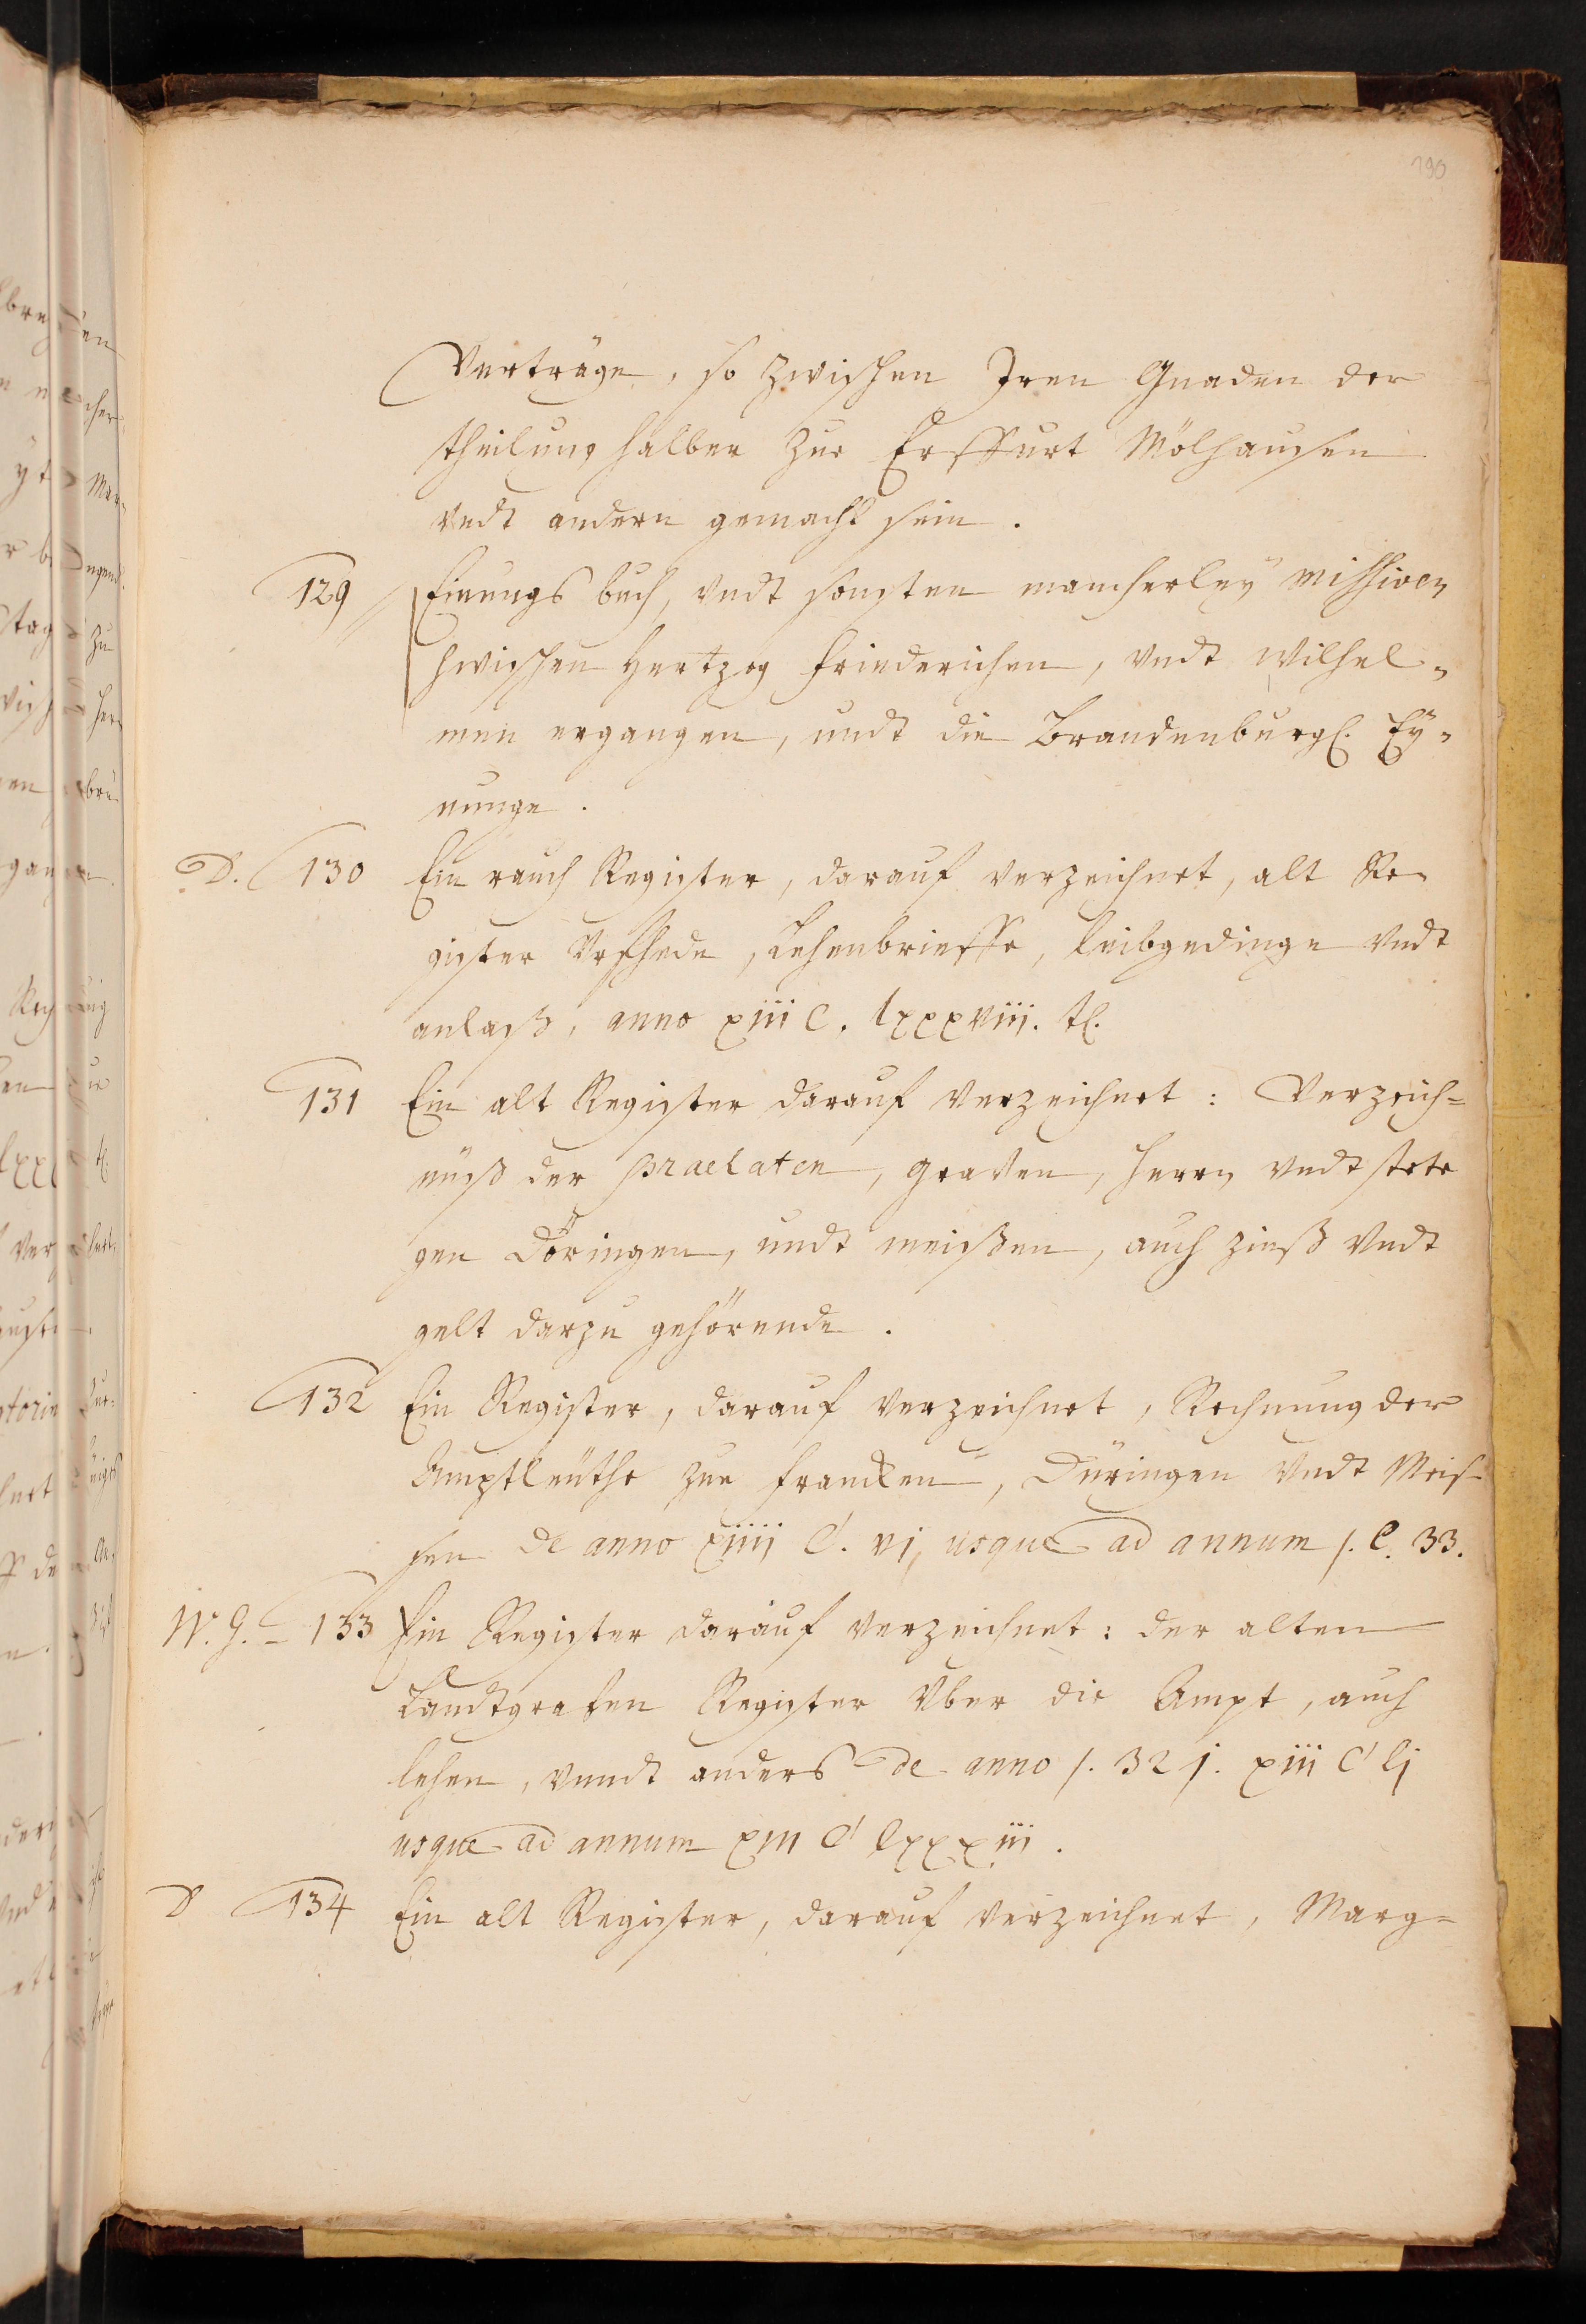 190
Verträge, so zwischen Iren Gnaden der
theilung halber zue Erffurt Mölhausen
vndt andern gemacht sein.
129 Einungs buch, vndt sonsten mancherley missiven
zwischen Hertzog Friederichen, vndt Wilhel-
men ergangen, undt die Brandenburgl. Ey-
nunge.
D. 130 Ein rauch Register, darauf verzeichnet, alt Re-
gister Vrfhede, Lehenbrieffe, Leibgedinge vndt
anlass, anno xiii C. lxxxviii. tl.
131 Ein alt Register darauf verzeichnet: Verzeich=
nüß der praelaten, graven, herrn vndt stete
gen Döringen, undt meißen, auch zinß vndt
gelt darzu gehörende.
132 Ein Register, darauf verzeichnet, Rechnung der
Amptleuthe zue francken, Düringen vndt Meis-
sen de anno xiiii C. vi, usque ad annum /. C. 33.
W. G. - 133 Ein Register darauf verzeichnet: der alten
Landtgrafen Register über die Ampt, auch
lehen, vnndt anders de anno /. 32 j. xiii C lj
usque ad annum xiii C lxxxiii.
D 134 Ein alt Register, darauf verzeichnet, Marg=